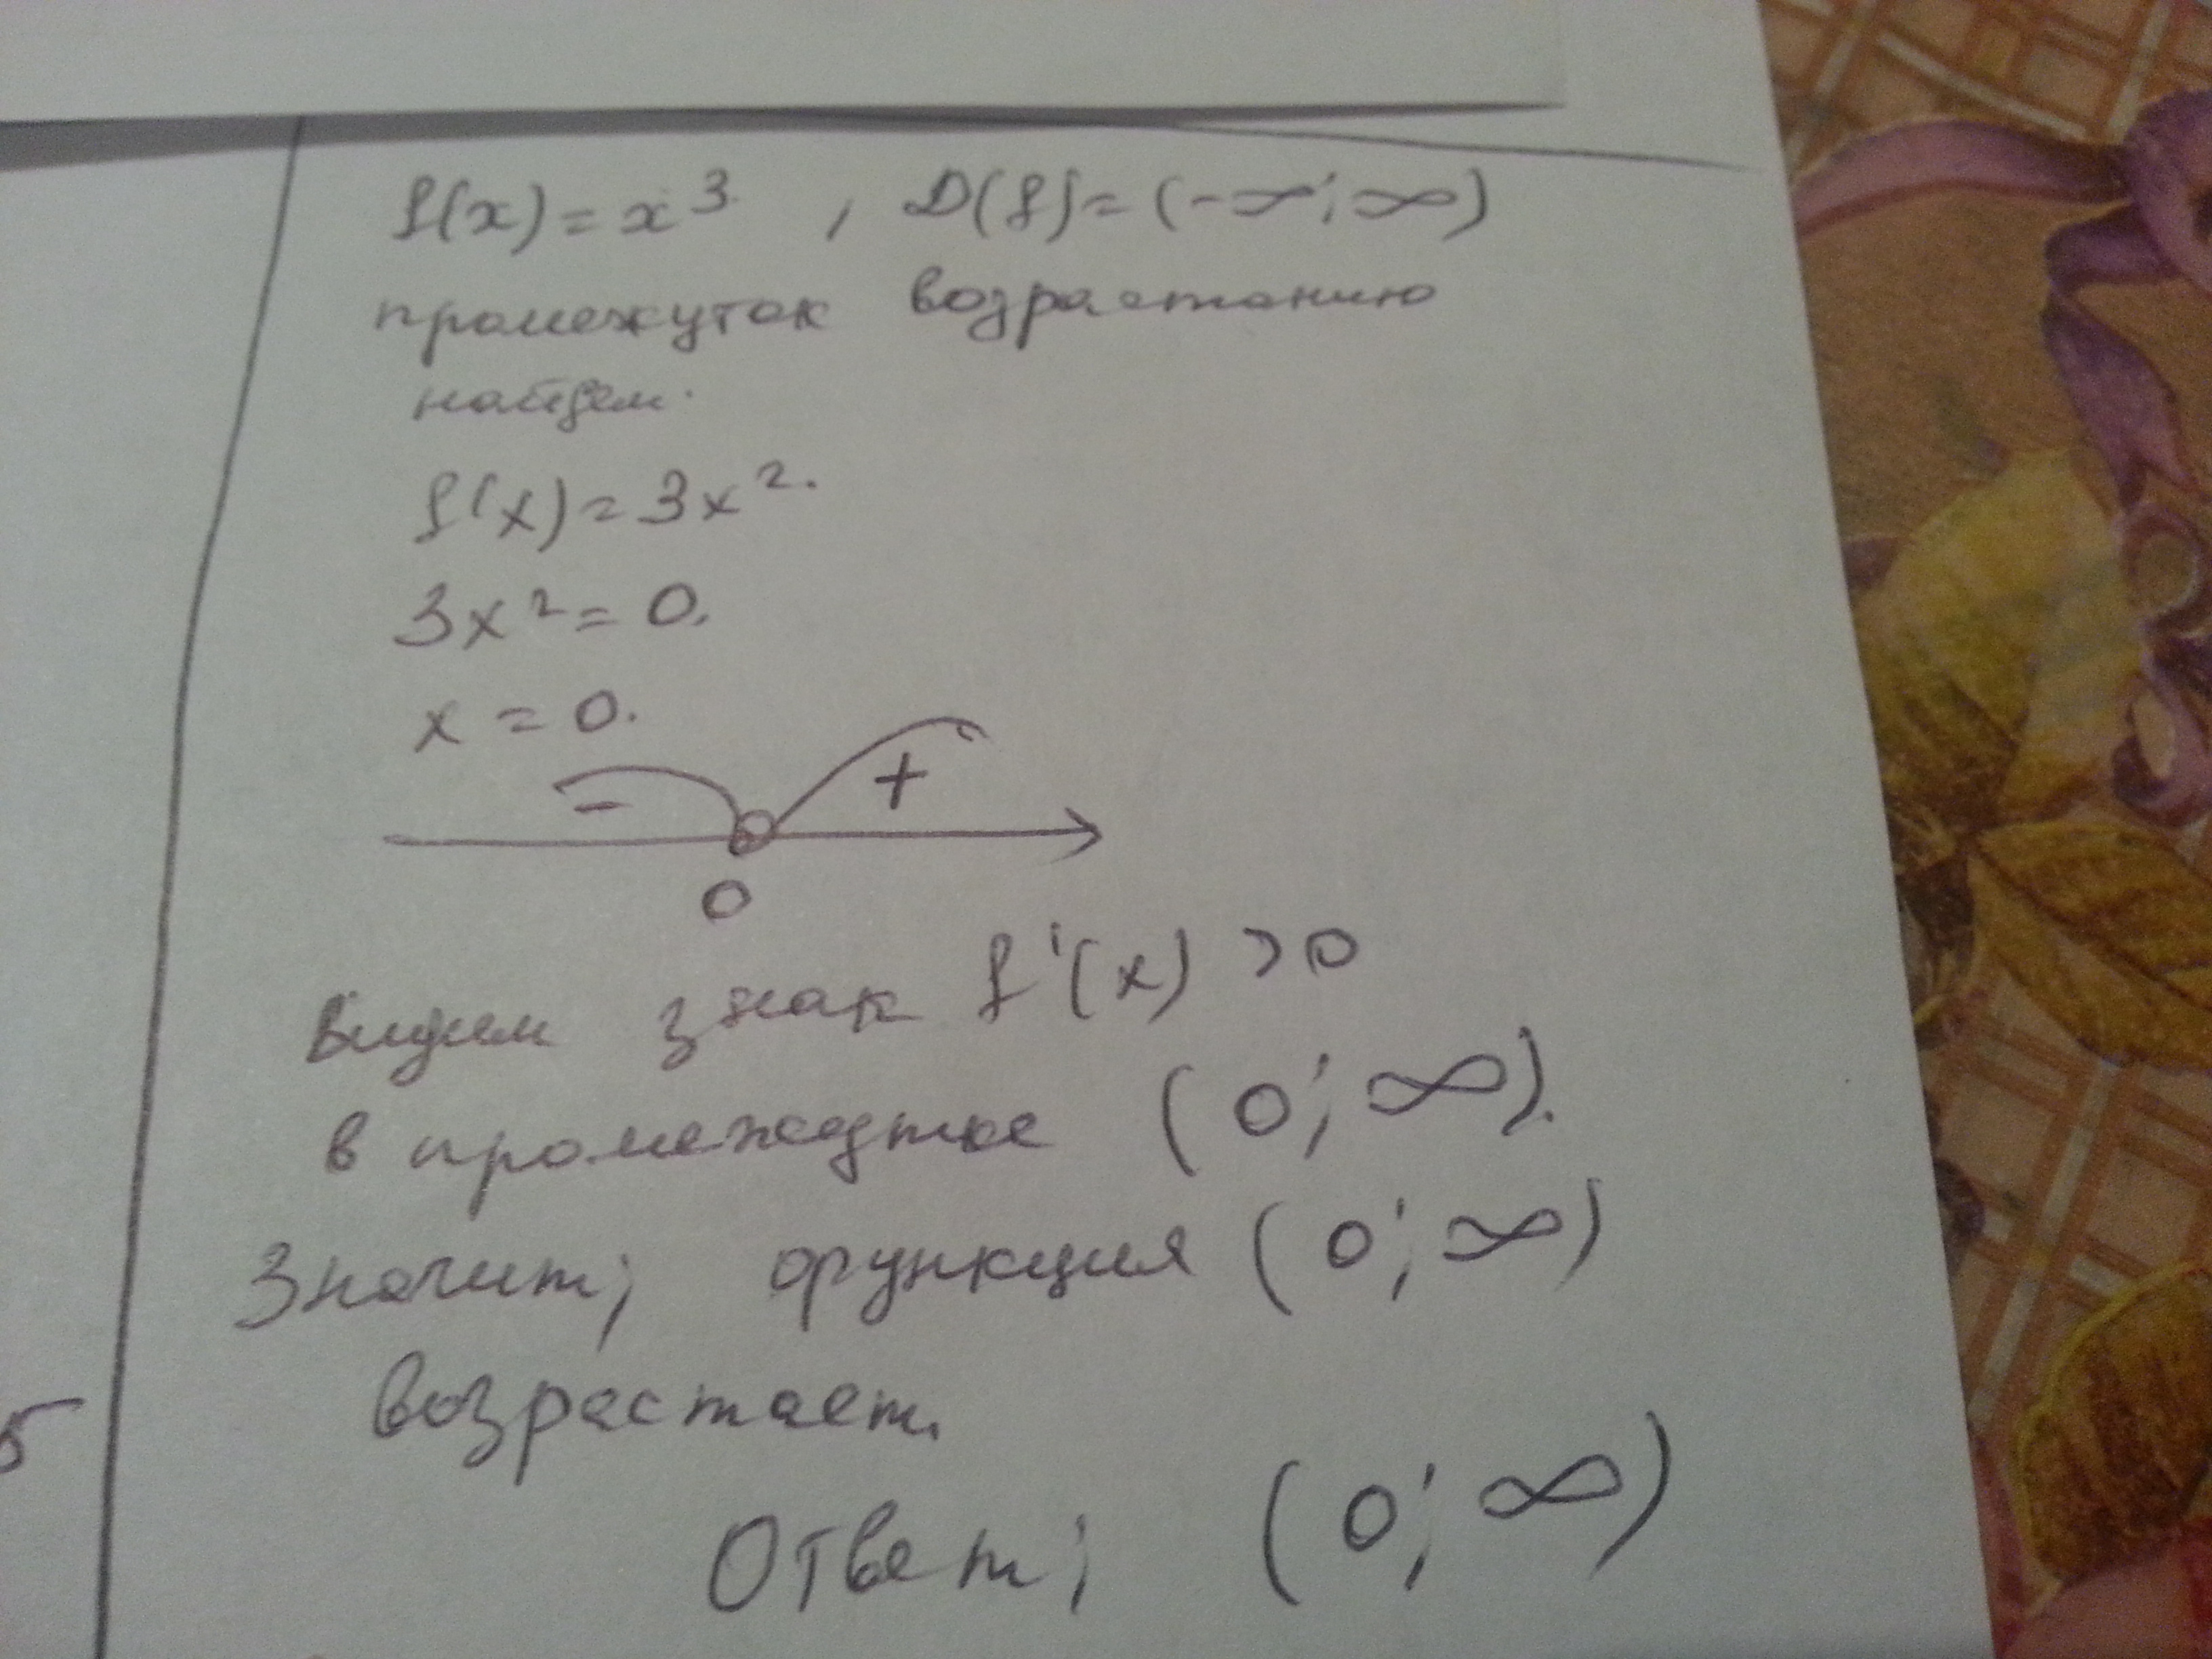 f(x) = x³ , D(f) = (-∞; ∞)
промежуток возрастанию
найдем.
f'(x) = 3x².
3x² = 0.
x = 0.
- +
0
Видим знак f'(x) >0
в промежутке (0; ∞).
Значит; функция (0; ∞)
возрастает.
Ответ; (0; ∞)
5